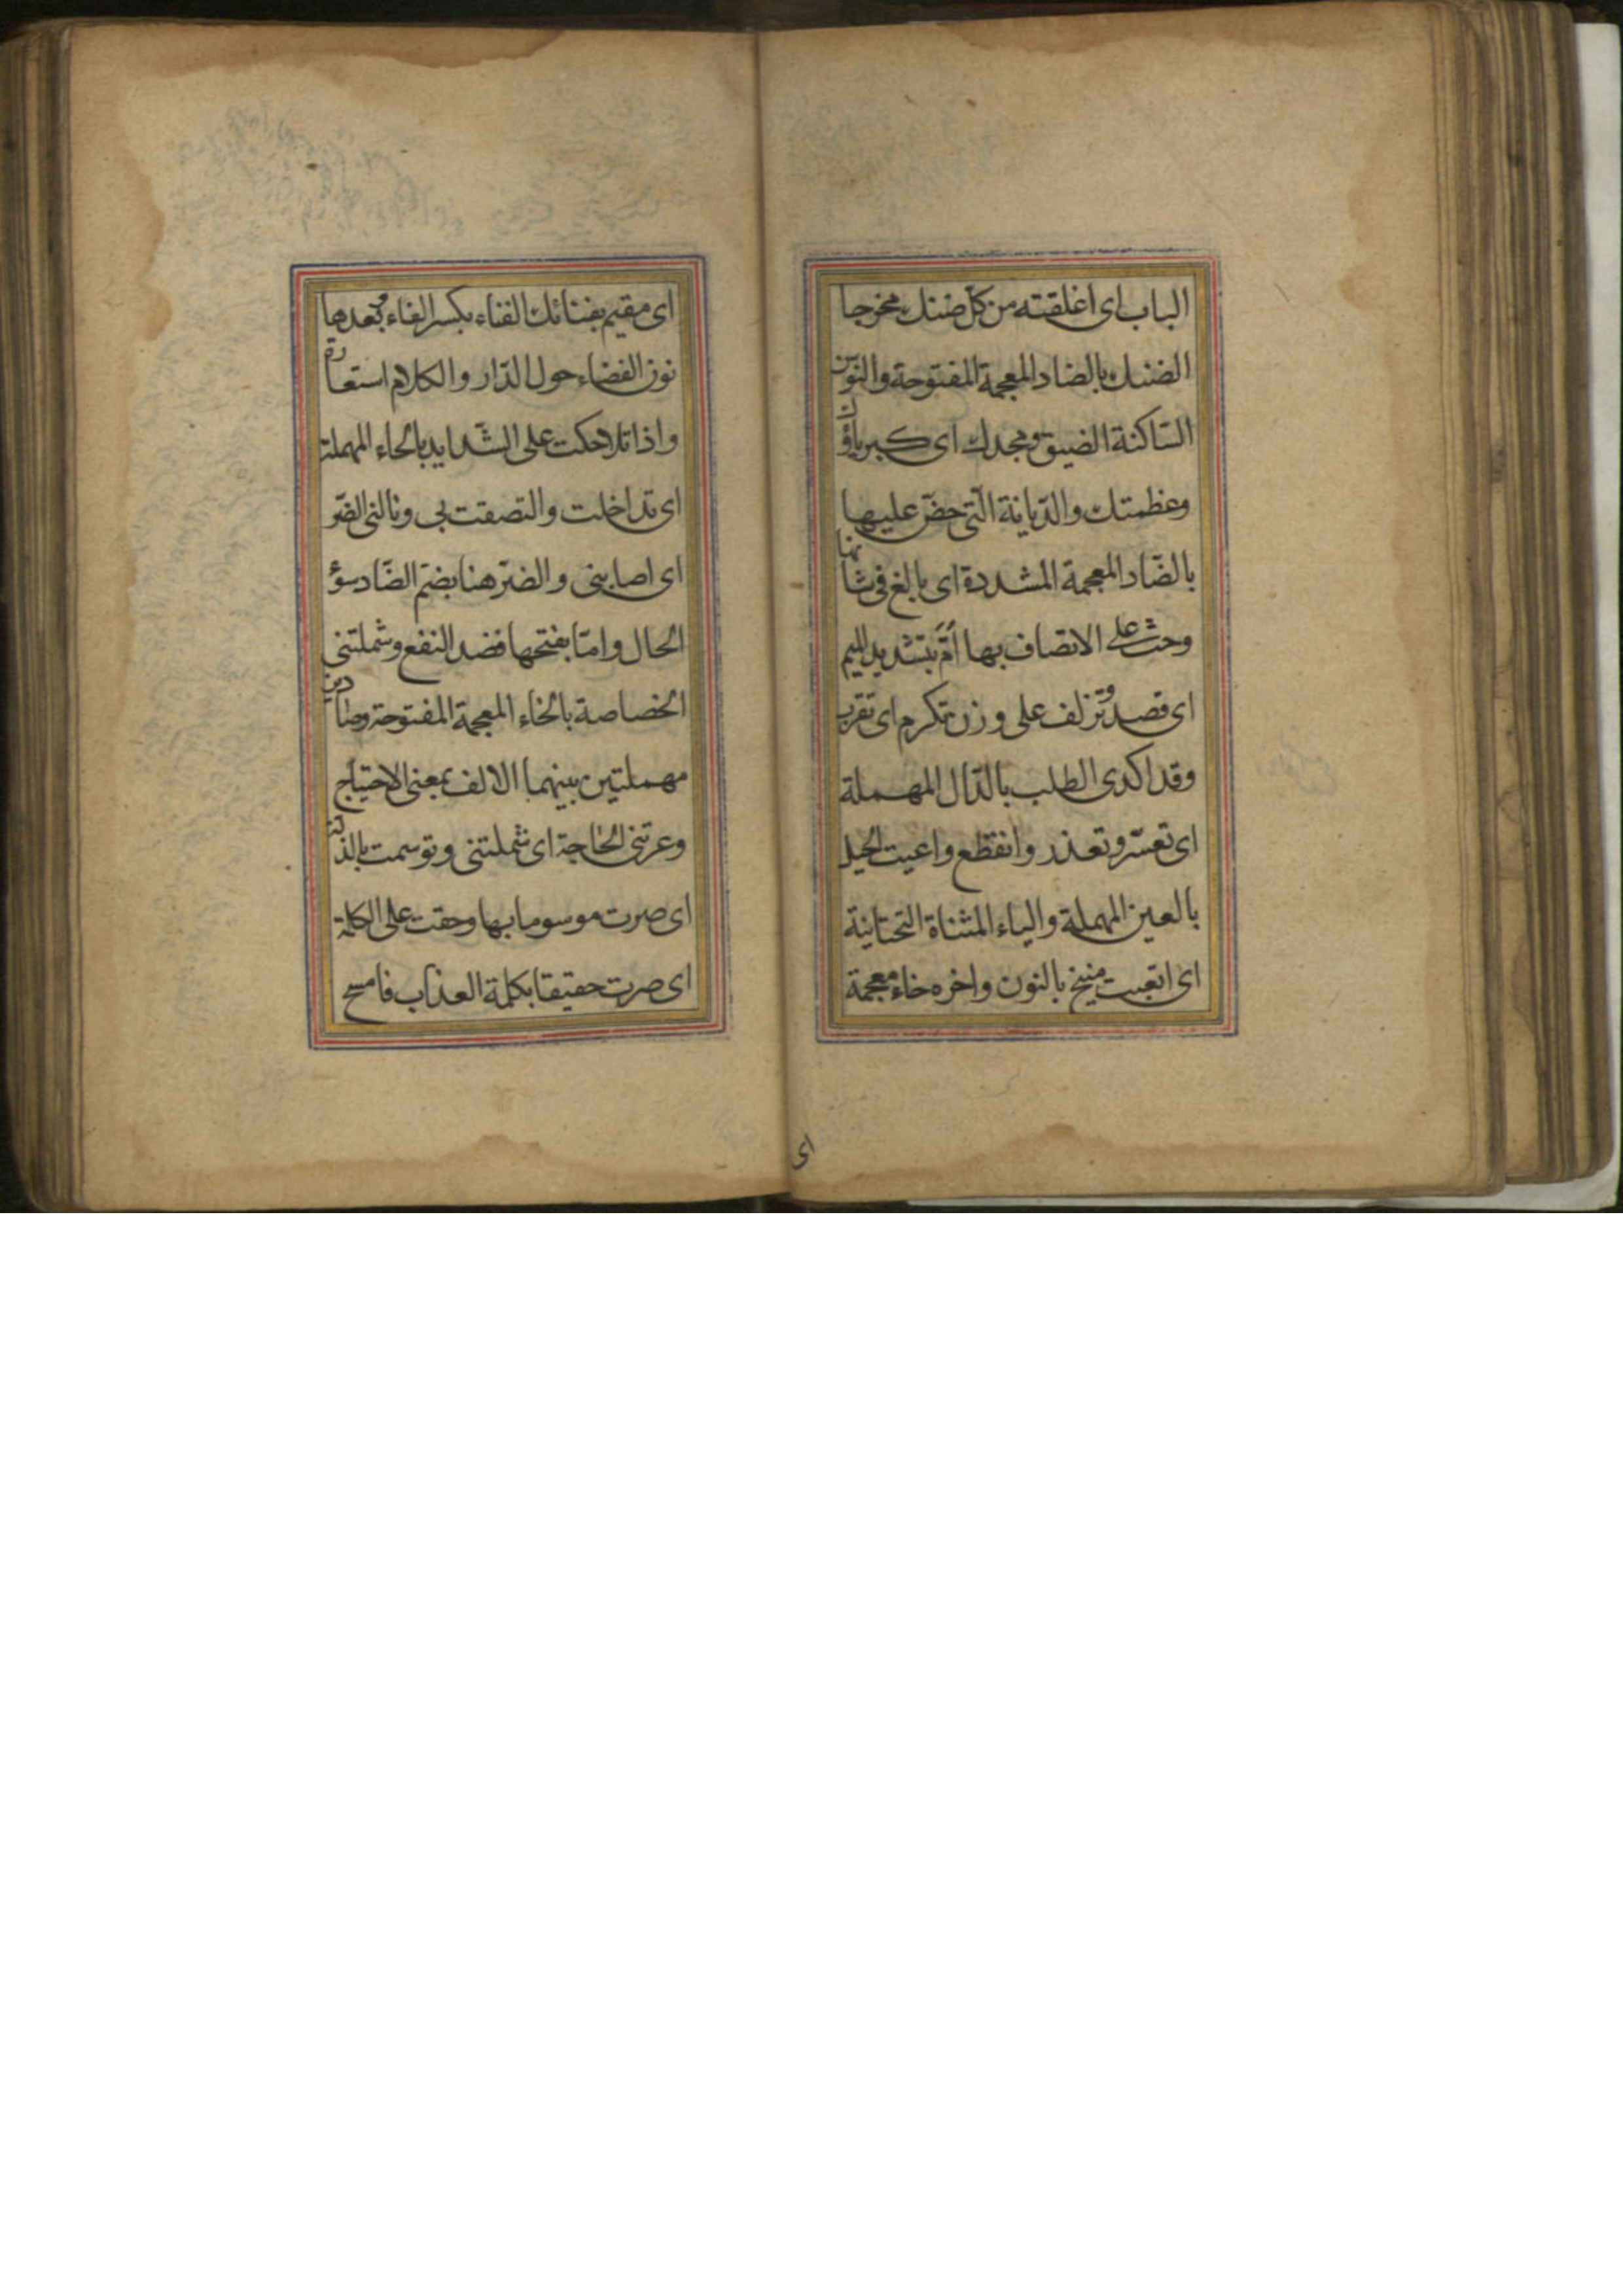 الباب ای اغلقته من کلّ ضنك مخرجا
الضنك بالضاد المعجمة المفتوحة والنون
السّاكنة الضیق ومجدك ای کبریاؤك
وعظمتك والدّیانة الّتی حضّ علیها
بالضّاد المعجمة المشددة ای بالغ فی شانها
وحث علی الاتصاف بها أمّ بتشدید المیم
ای قصد وتزلف علی وزن تکرم ای تقرب
وقد اکدی الطلب بالدّال المهملة
ای تعسّر وتعذر وانقطع واعیت الحیل
بالعین المهملة والیاء المثناة التحتانیة
ای اتعبت منیخ بالنون واخره خاء معجمة
ای
ای مقیم بفنائك الفناء بکسر الفاء وبعدها
نون الفضاء حول الدّار والکلام استعارة
واذا تلاحکت علی الشّداید بالحاء المهملة
ای تداخلت والتصقت بی ونالنی الضّر
ای اصابنی والضّر هنا بضمّ الضّاد سوٴ
الحال وامّا بفتحها فضد النفع وشملتنی
الخصاصة بالخاء المعجمة المفتوحة وصادین
مهملتین بینهما الالف بمعنی الاحتیاج
وعرتنی الحاجة ای شملتنی وتوسمت بالذلة
ای صرت موسوما بها وحقت علی الکلمة
ای صرت حقیقا بکلمة العذاب فامسح